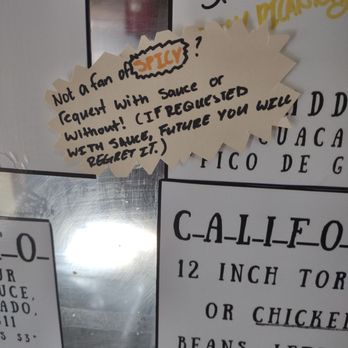 Not a fan of SPICY?
request with Sauce or
without! (IF REQUESTED
WITH SAUCE, FUTURE YOU WILL
REGRET IT.)
PICO DE G
CALIFO
12 INCH TOR
OR CHICKE
BEANS,
O
UR
UCE,
ADO,
$11